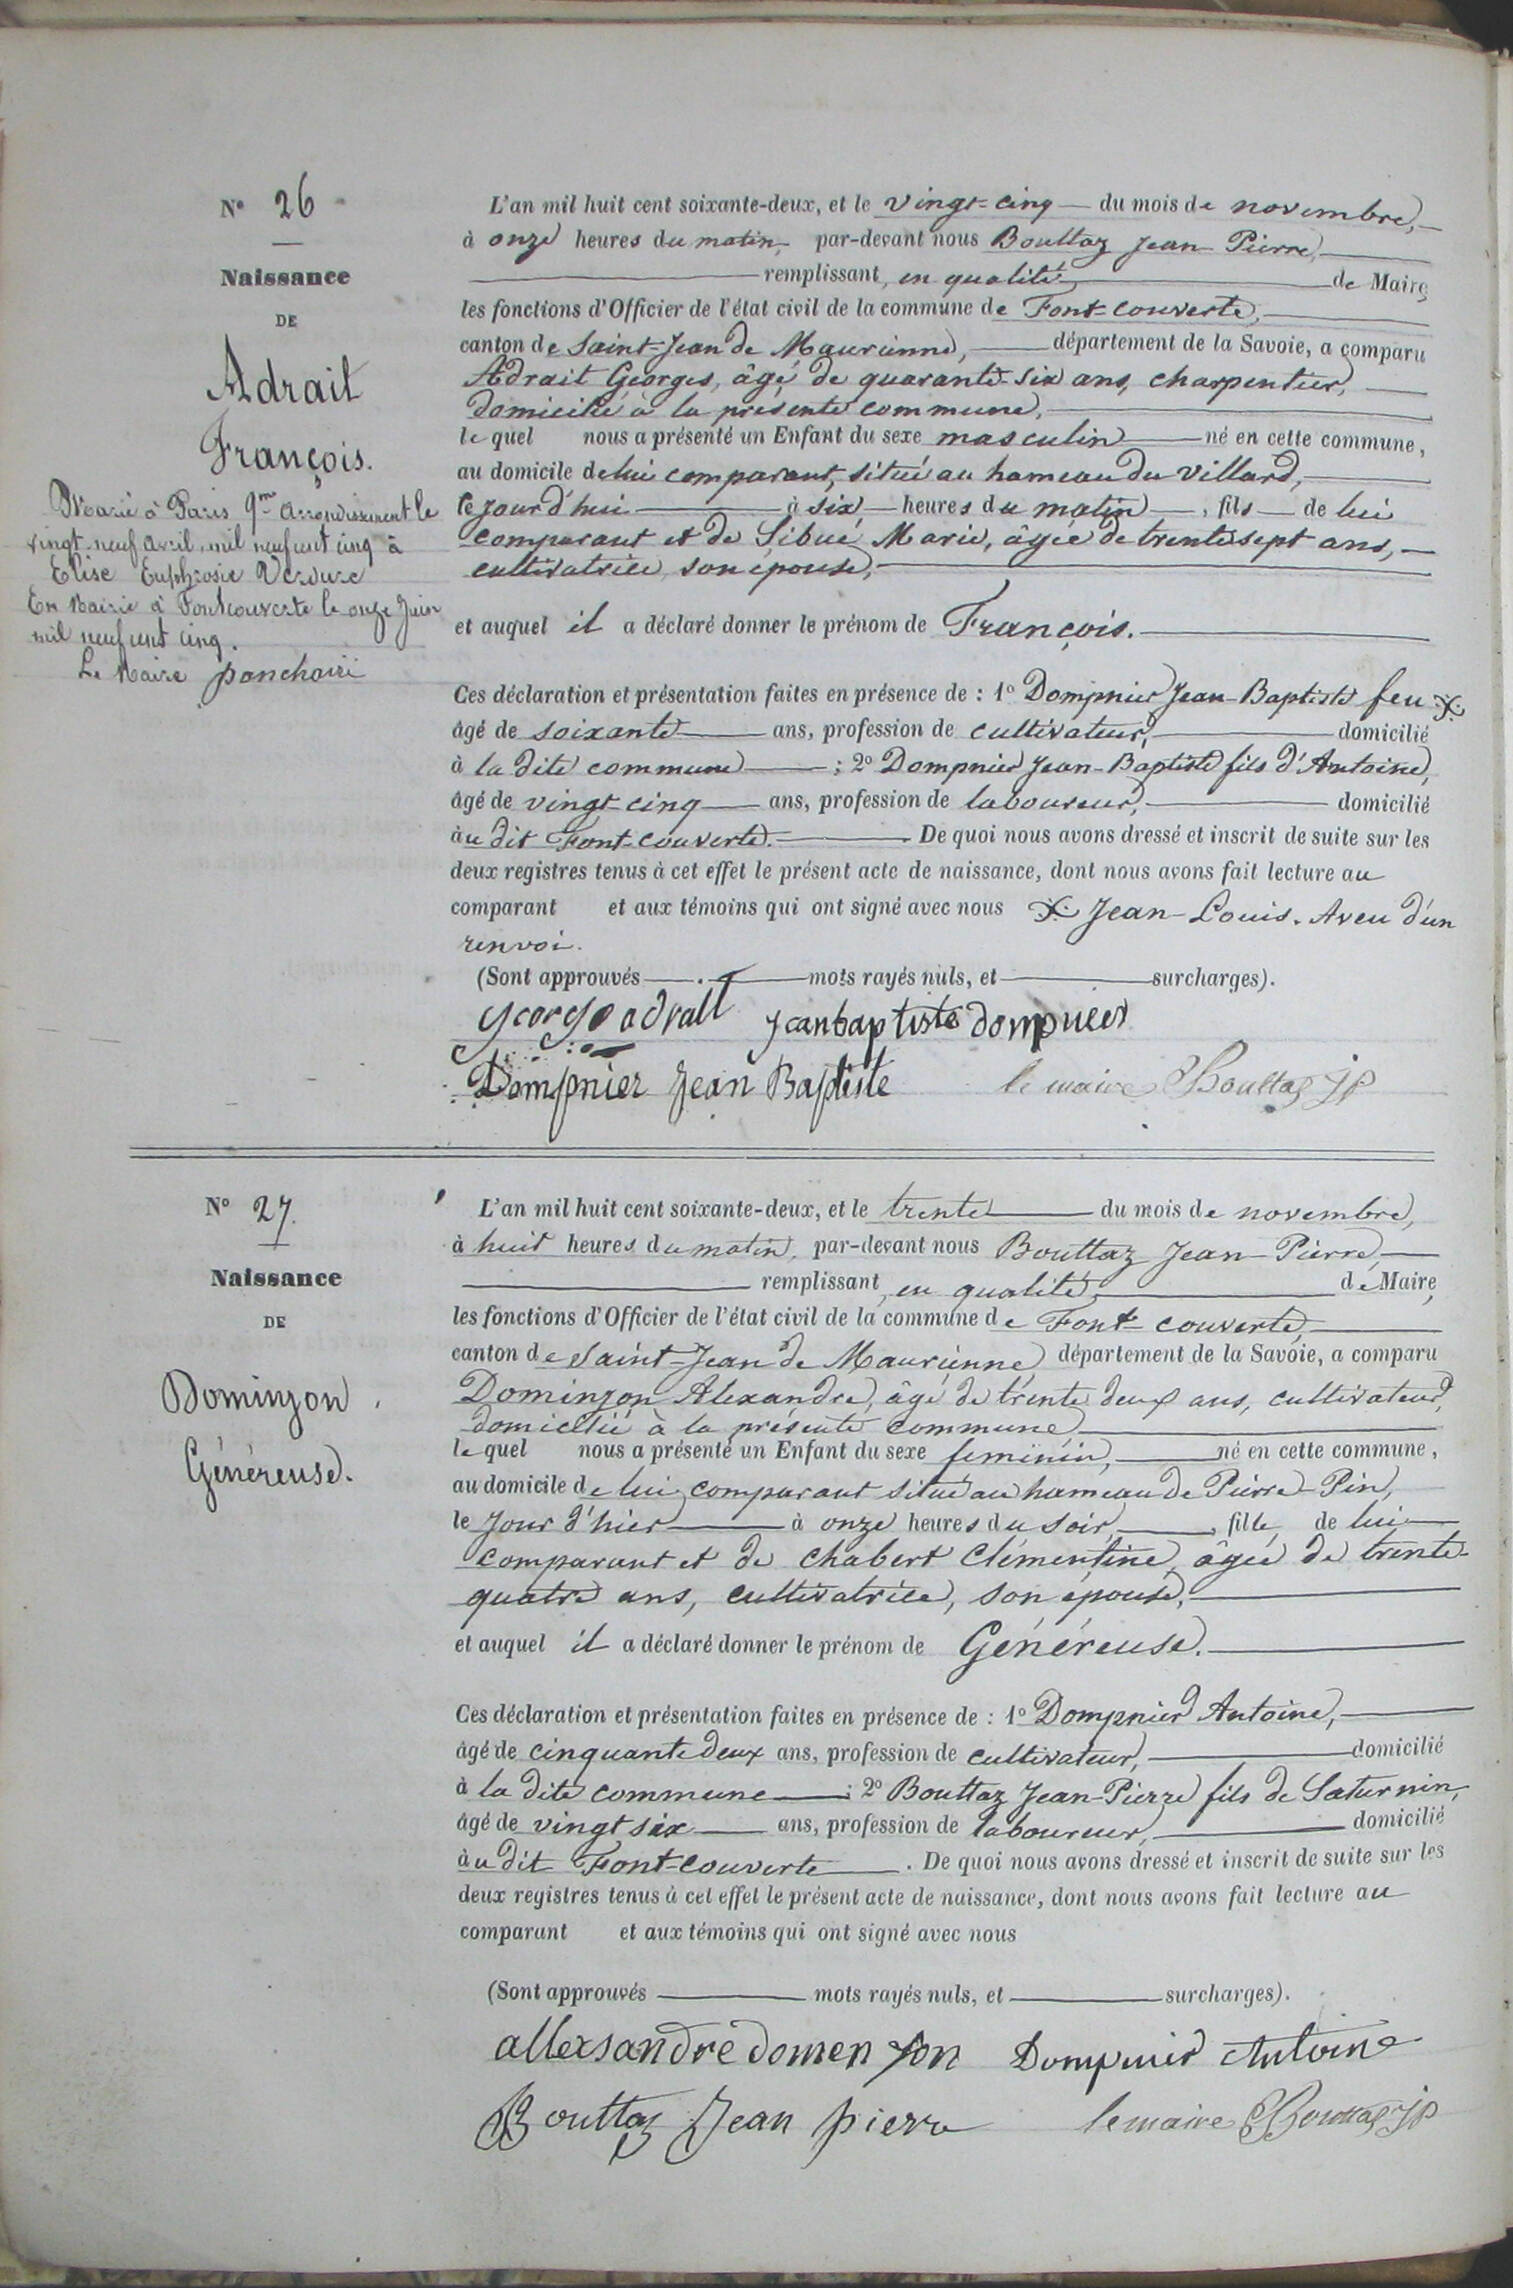 N° 26
Naissance
DE
Adrait
François.
Marié à Paris 9me arrondissement le
vingt-neuf avril mil neuf cent cinq à
Elise Euphrosie Verdure
En Mairie à Fontcouverte le onze Juin
mil neuf cent cinq.
Le Maire
L'an mil huit cent soixante-deux, et le vingt-cinq du mois de novembre,
à onze heures du matin, par-devant nous Bouttaz Jean-Pierre,
remplissant, en qualité, de Maire,
les fonctions d'Officier de l'état civil de la commune de Font-couverte,
canton de Saint-Jean de Maurienne, département de la Savoie, a comparu
Adrait Georges, âgé de quarante-six ans, charpentier,
domicilié à la présente commune,
le quel nous a présenté un Enfant du sexe masculin né en cette commune,
au domicile de lui comparant, situé au hameau du Villard,
le jour d'hui à six heures du matin, fils de lui
comparant et de Sibué Marie, âgée de trente sept ans,
cultivatrice, son épouse,
et auquel il a déclaré donner le prénom de François.
Ces déclaration et présentation faites en présence de : 1° Dompnier Jean-Baptiste feu ※
âgé de soixante ans, profession de cultivateur, domicilié
à la dite commune ; 2° Dompnier Jean-Baptiste fils d'Antoine,
âgé de vingt-cinq ans, profession de laboureur, domicilié
au dit Font-couverte. De quoi nous avons dressé et inscrit de suite sur les
deux registres tenus à cet effet le présent acte de naissance, dont nous avons fait lecture au
comparant et aux témoins qui ont signé avec nous ※ Jean-Louis. Aveu d'un
renvoi.
(Sont approuvés mots rayés nuls, et surcharges).
George adrait jeanbaptiste dompnier
Dompnier Jean Baptiste le maire Bouttaz JP
N° 27.
Naissance
DE
Dominjon
Généreuse.
L'an mil huit cent soixante-deux, et le trente du mois de novembre,
à huit heures du matin, par-devant nous Bouttaz Jean-Pierre,
remplissant, en qualité, de Maire,
les fonctions d'Officier de l'état civil de la commune de Font-couverte,
canton de Saint-Jean de Maurienne, département de la Savoie, a comparu
Dominjon Alexandre, âgé de trente deux ans, cultivateur,
domicilié à la présente commune,
le quel nous a présenté un Enfant du sexe feminin, né en cette commune,
au domicile de lui comparant situé au hameau de Pierre-Pin,
le jour d'hier à onze heures du soir, fille de lui
comparant et de Chabert Clémentine, âgée de trente-
quatre ans, cultivatrice, son épouse,
et auquel il a déclaré donner le prénom de Généreuse.
Ces déclaration et présentation faites en présence de : 1° Dompnier Antoine,
âgé de cinquante deux ans, profession de cultivateur, domicilié
à la dite commune ; 2° Bouttaz Jean-Pierre fils de Saturnin,
âgé de vingt six ans, profession de laboureur, domicilié
au dit Font-couverte. De quoi nous avons dressé et inscrit de suite sur les
deux registres tenus à cet effet le présent acte de naissance, dont nous avons fait lecture au
comparant et aux témoins qui ont signé avec nous
(Sont approuvés mots rayés nuls, et surcharges).
allexsandre domenjon Dompnier Antoine
Bouttaz Jean pierre le maire Bouttaz JP